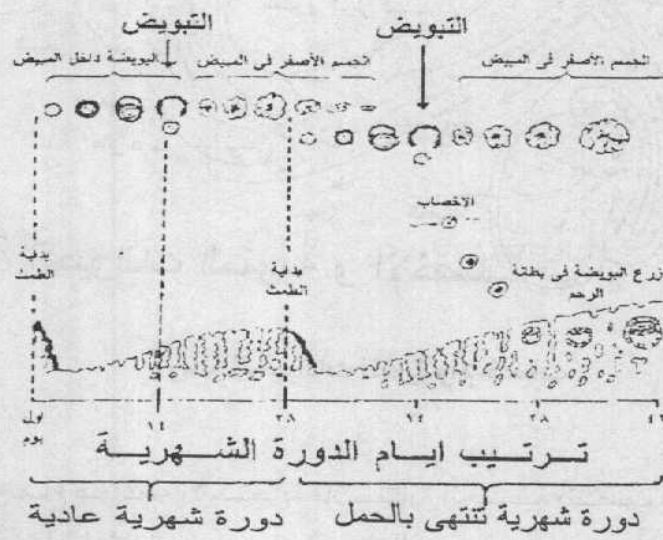 التبويض
التبويض
البويضة داخل المبيض
الجسم الأصفر فى المبيض
الجسم الأصفر فى المبيض
الاخصاب
بداية
الطمث
بداية
الطمث
زرع البويضة فى بطانة
الرحم
اول
يوم
١٤
٢٨
١٤
٢٨
٤٢
ترتيب ايام الدورة الشهرية
دورة شهرية عادية
دورة شهرية تنتهى بالحمل